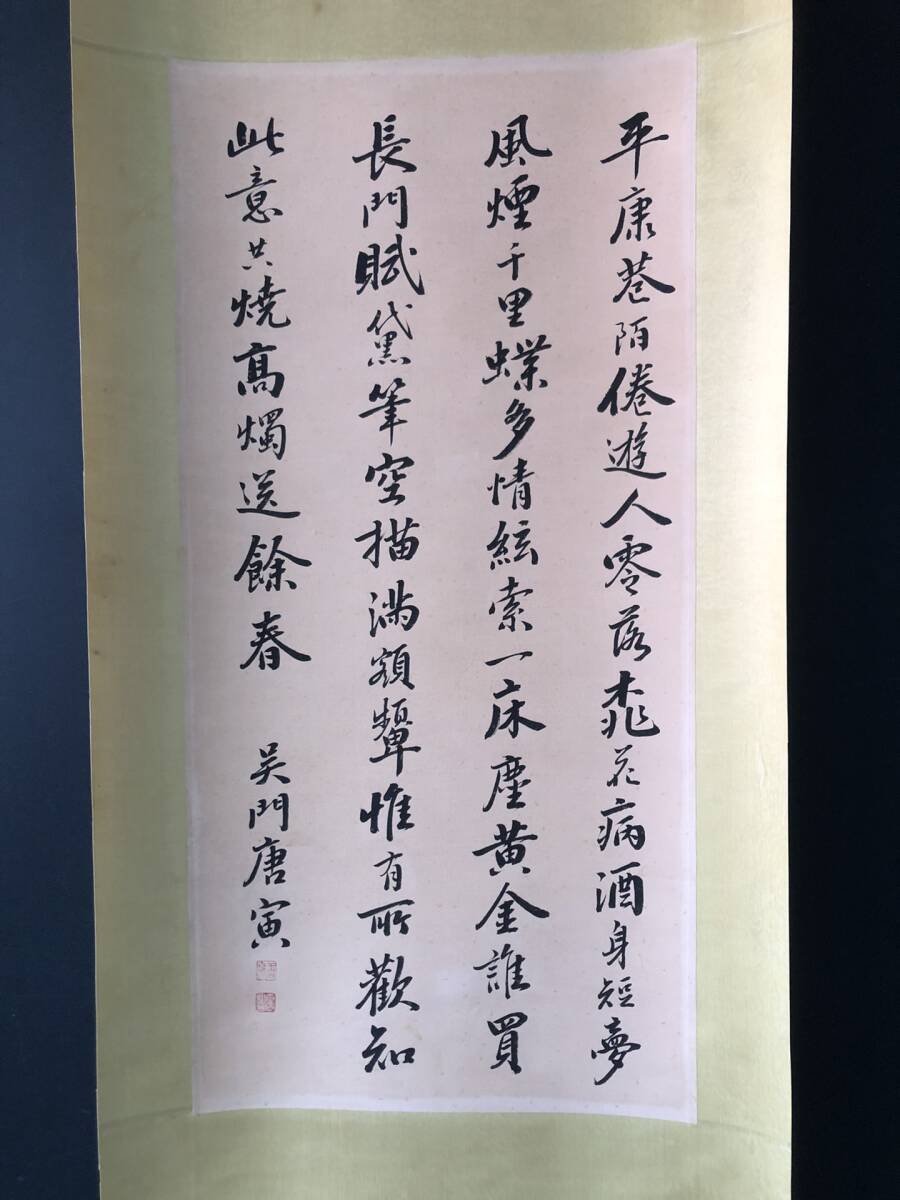 平康巷陌倦遊人零落桃花病酒身短夢
風煙千里蝶多情絃索一床塵黃金誰買
長門賦黛筆空描滿額顰惟有所歡知
此意共燒高燭送餘春
吳門唐寅